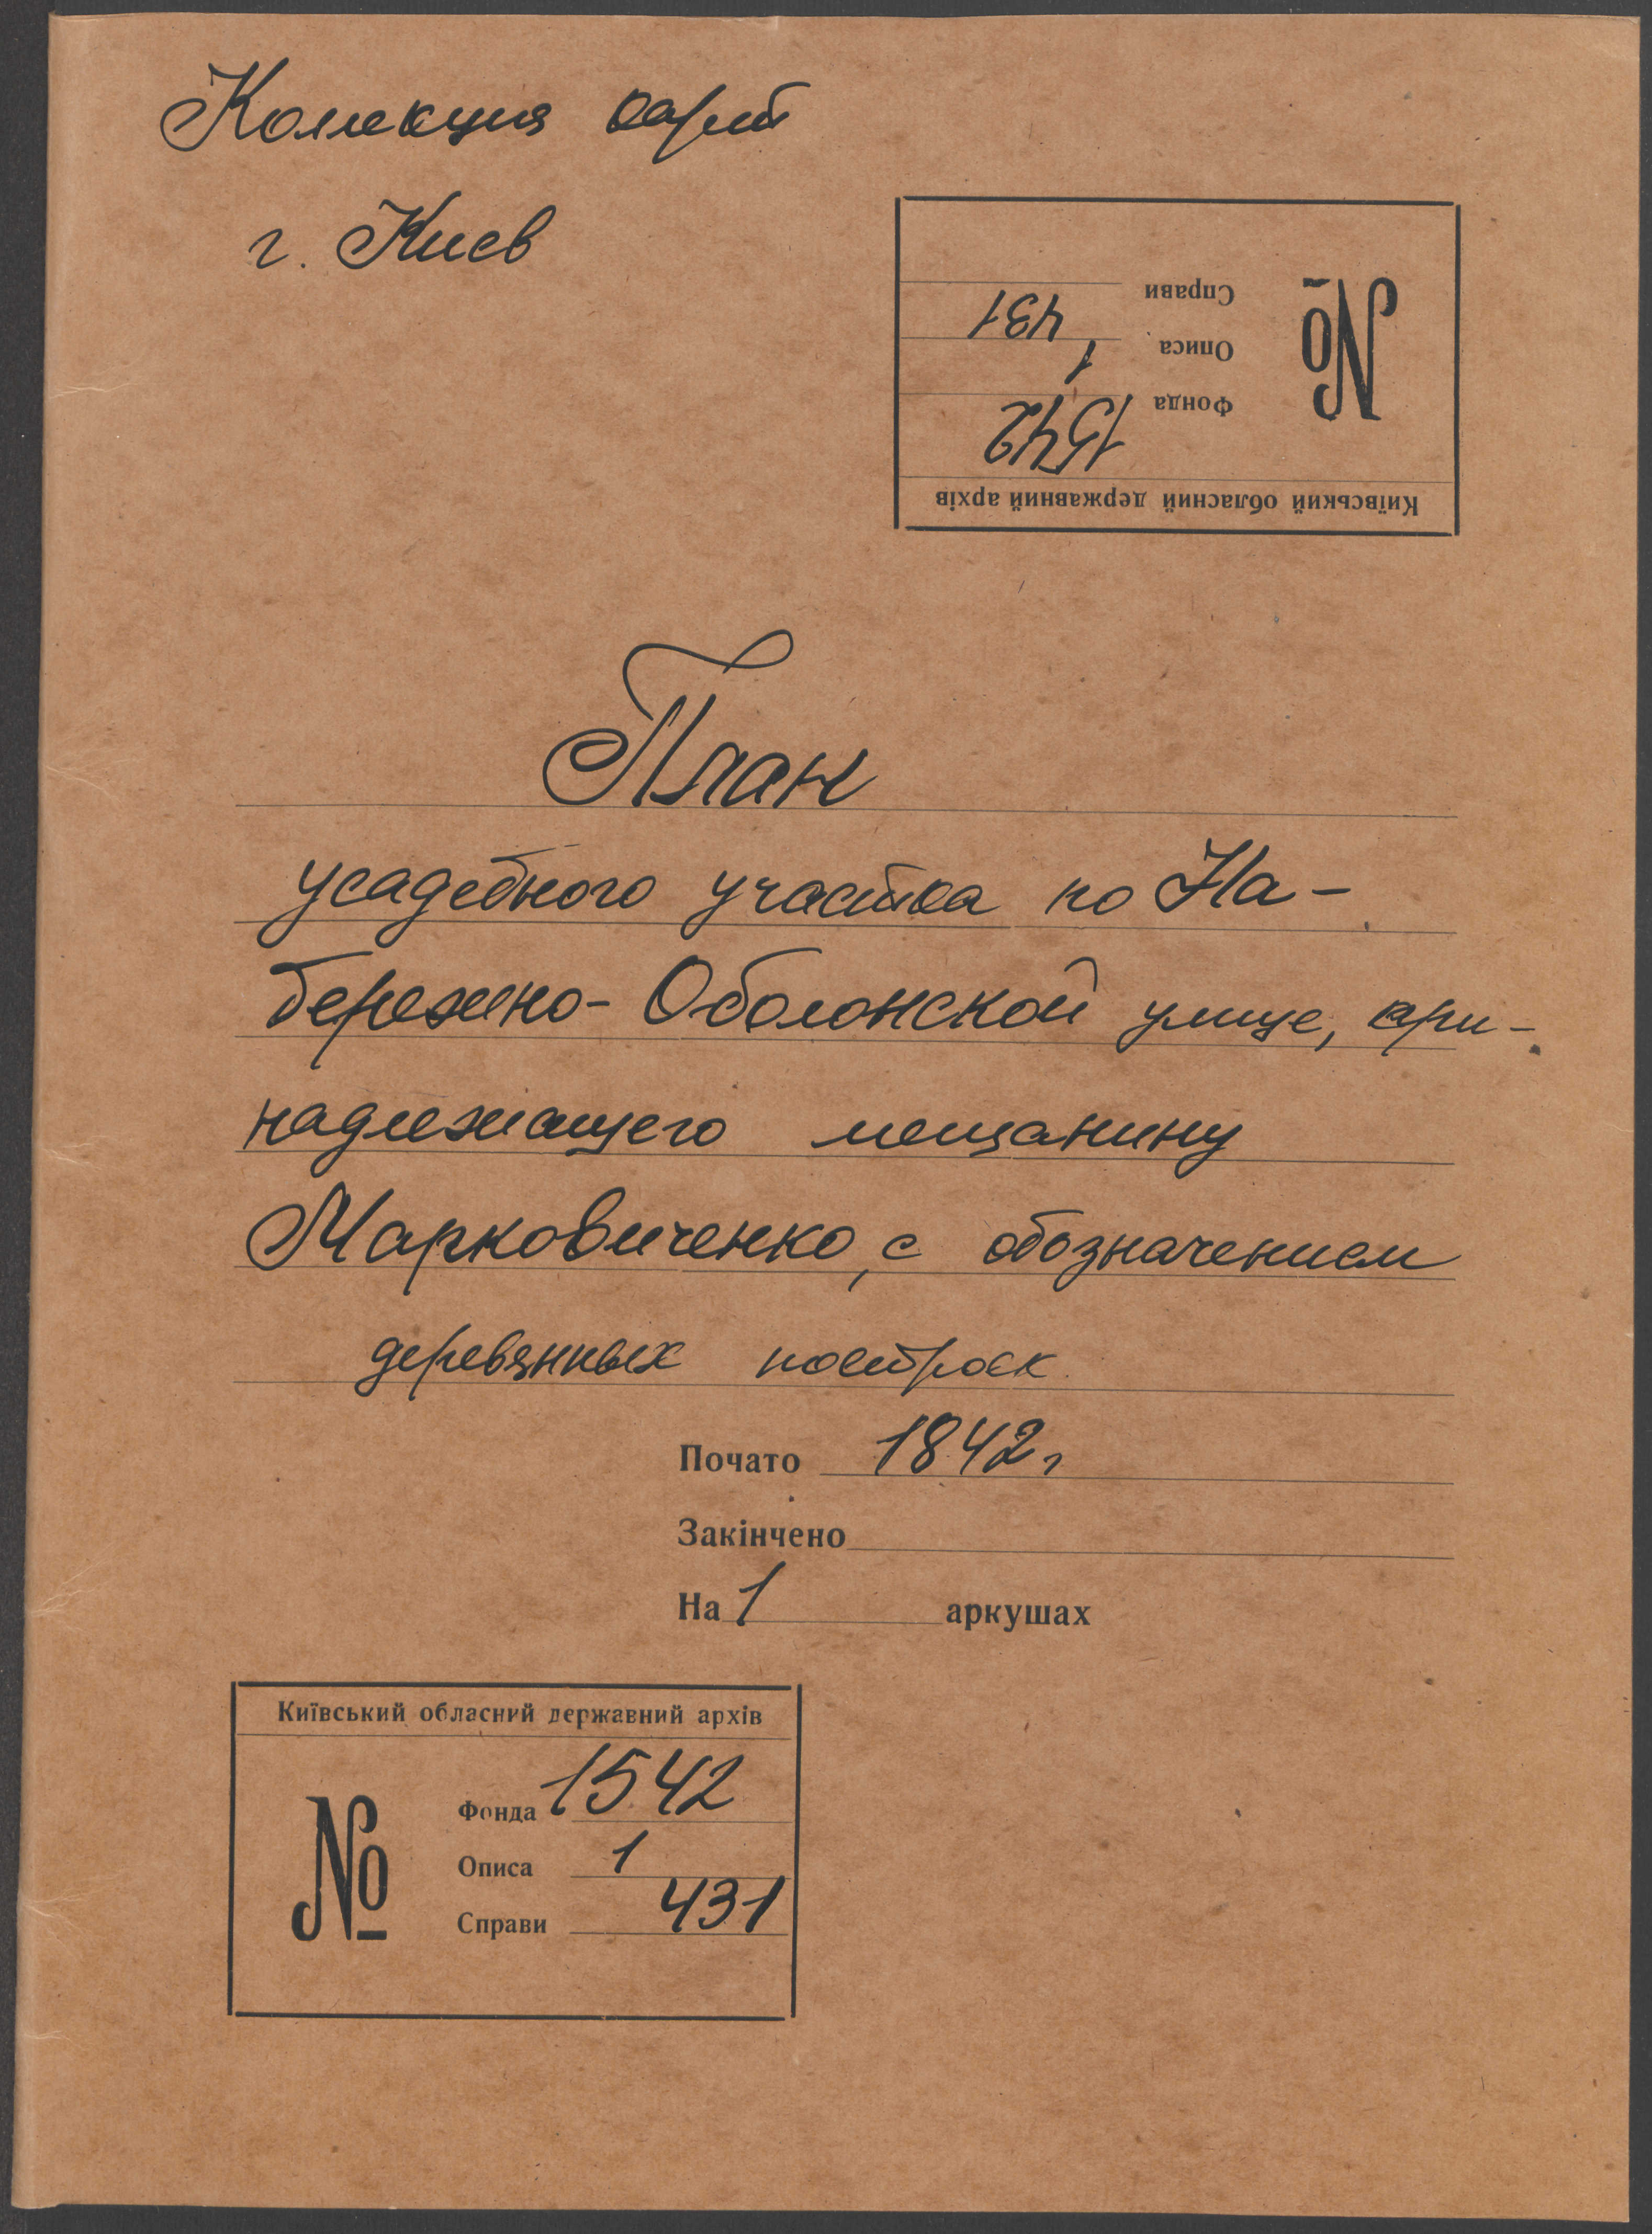 Колекция карт
г. Киев
Київський обласний державний архів
№
Фонда 1542
Описа 1
Справи 431
План
усадебного участка по На-
бережно-Оболонской улице, при-
надлежащего мещанину
Марковиченко, с обозначением
деревянных построек.
Почато 1842 г
Закінчено
На 1 аркушах
Київський обласний державний архів
№
Фонда 1542
Описа 1
Справи 431